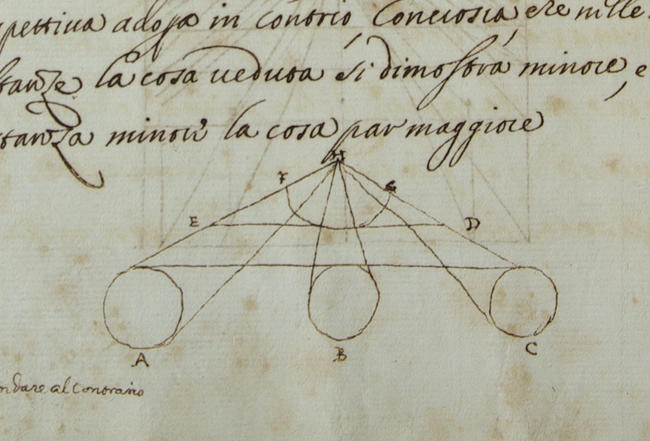 pettiva adopa in contrio Conciosia che nille
stanze la cosa veduta si dimostra minore, e
stanza minori la cosa par maggiore
H
F G
E D
A B C
ndare al Contrario